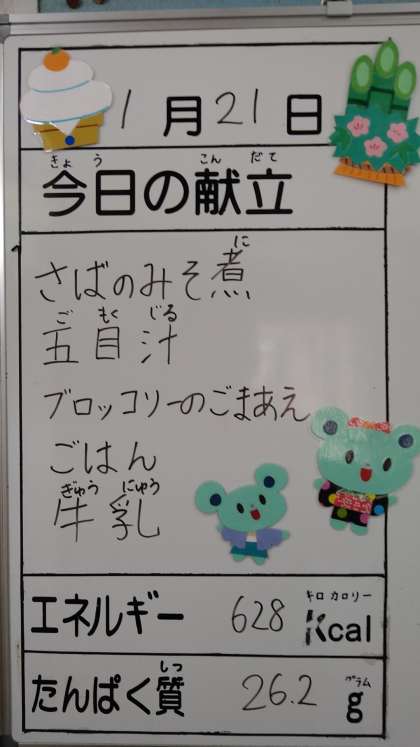 1月21日
きょう こん だて
今日の献立
に
さばのみそ煮
ご もく じる
五目汁
ブロッコリーのごまあえ
ごはん
ぎゅう にゅう
牛乳
キロカロリー
エネルギー 628 Kcal
しつ グラム
たんぱく質 26.2 g